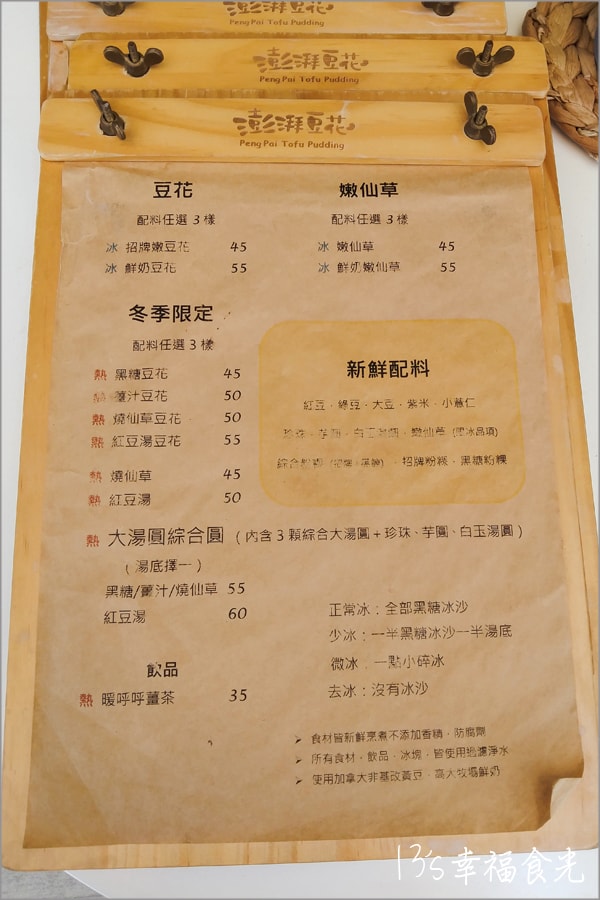 澎湃豆花
Peng Pai Tofu Pudding
澎湃豆花
Peng Pai Tofu Pudding
澎湃豆花
Peng Pai Tofu Pudding
豆花
配料任選 3 樣
冰 招牌嫩豆花 45
冰 鮮奶豆花 55
嫩仙草
配料任選 3 樣
冰 嫩仙草 45
冰 鮮奶嫩仙草 55
冬季限定
配料任選 3 樣
熱 黑糖豆花 45
熱 薑汁豆花 50
熱 燒仙草豆花 50
熱 紅豆湯豆花 55
熱 燒仙草 45
熱 紅豆湯 50
新鮮配料
紅豆．綠豆．大豆．紫米．小薏仁
珍珠．芋圓．白玉湯圓．嫩仙草
招牌粉粿．黑糖粉粿
熱 大湯圓綜合圓 (內含 3 顆綜合大湯圓 + 珍珠、芋圓、白玉湯圓)
(湯底擇一)
黑糖/薑汁/燒仙草 55
紅豆湯 60
正常冰：全部黑糖冰沙
少冰：一半黑糖冰沙一半湯底
微冰：一點小碎冰
去冰：沒有冰沙
飲品
熱 暖呼呼薑茶 35
➢ 食材皆新鮮烹煮不添加香精，防腐劑
➢ 所有食材，飲品，冰塊，皆使用過濾淨水
➢ 使用加拿大非基改黃豆，高大牧場鮮奶
13's幸福食光